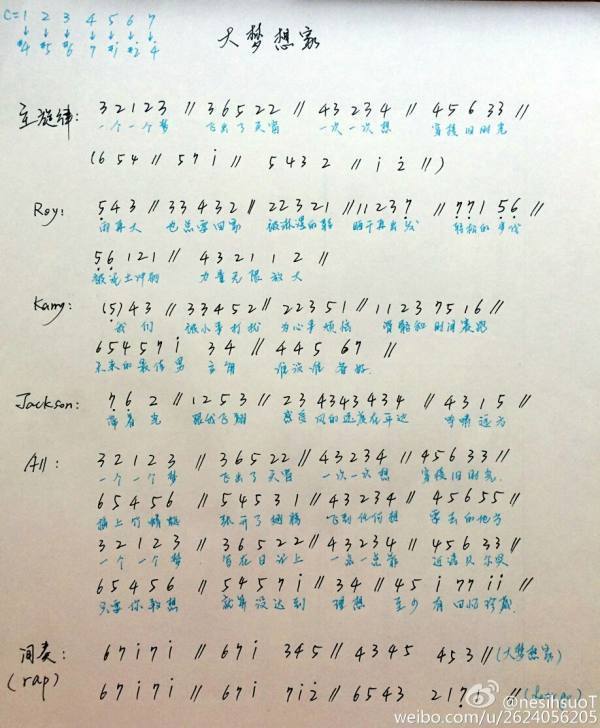 C=1 2 3 4 5 6 7
↓ ↓ ↓ ↓ ↓ ↓ ↓
#4 #5 #6 7 #1 #2 4
大梦想家
主旋律: 3 2 1 2 3 // 3 6 5 2 2 // 4 3 2 3 4 // 4 5 6 3 3 //
一个一个梦 飞出了天窗 一次一次想 穿梭旧时光
(6 5 4 // 5 7 i // 5 4 3 2 // i 2̇ //)
Roy: 5̣ 4 3 // 3 3 4 3 2 // 2 2 3 2 1 // 1 1 2 3 7̣ // 7̣ 7̣ 1 5̣ 6̣ //
雨再大 也总要回家 被淋湿的鞋 晒干再出发 轻松的步伐
5̣ 6̣ 1 2 1 // 4 3 2 1 1 2 //
被泥土冲刷 力量无限放大
Karry: (5) 4 3 // 3 3 4 5 2 // 2 2 3 5 1 // 1 1 2 3 7 5 1 6 //
我们 被小事打扰 为心事烦恼 滑船和时间赛跑
6 5 4 5 7 i 3 4 // 4 4 5 6 7 //
未来的最佳男 主角 谁没谁 好
Jackson: 7̣ 6̣ 2 // 1 2 5 3 // 2 3 4 3 4 3 4 3 4 // 4 3 1 5 //
带着光 跟我飞翔 感受风的速度在耳边 呼啸
All: 3 2 1 2 3 // 3 6 5 2 2 // 4 3 2 3 4 // 4 5 6 3 3 //
一个一个梦 飞出了天窗 一次一次想 穿梭旧时光
6 5 4 5 6 // 5 4 5 3 1 // 4 3 2 3 4 // 4 5 6 5 5 //
插上竹蜻蜓 张开了翅膀 飞到任何想 要去的地方
3 2 1 2 3 // 3 6 5 2 2 // 4 3 2 3 4 // 4 5 6 3 3 //
一个一个梦 写在日记上 一点一点靠 近诺贝尔奖
6 5 4 5 6 // 5 4 5 7 i // 3 4 // 4 5 i 7 7 i i //
只要你敢想 就算没达到 理想 至少有回忆珍藏
间奏: 6 7 i 7 i // 6 7 i 3 4 5 // 4 3 4 5 4 5 3 // (大梦想家)
(rap) 6 7 i 7 i // 6 7 i 7 i 2̇ // 6 5 4 3 2 1 7̣ 1 //
@nesihsuoT
weibo.com/u/2624056205